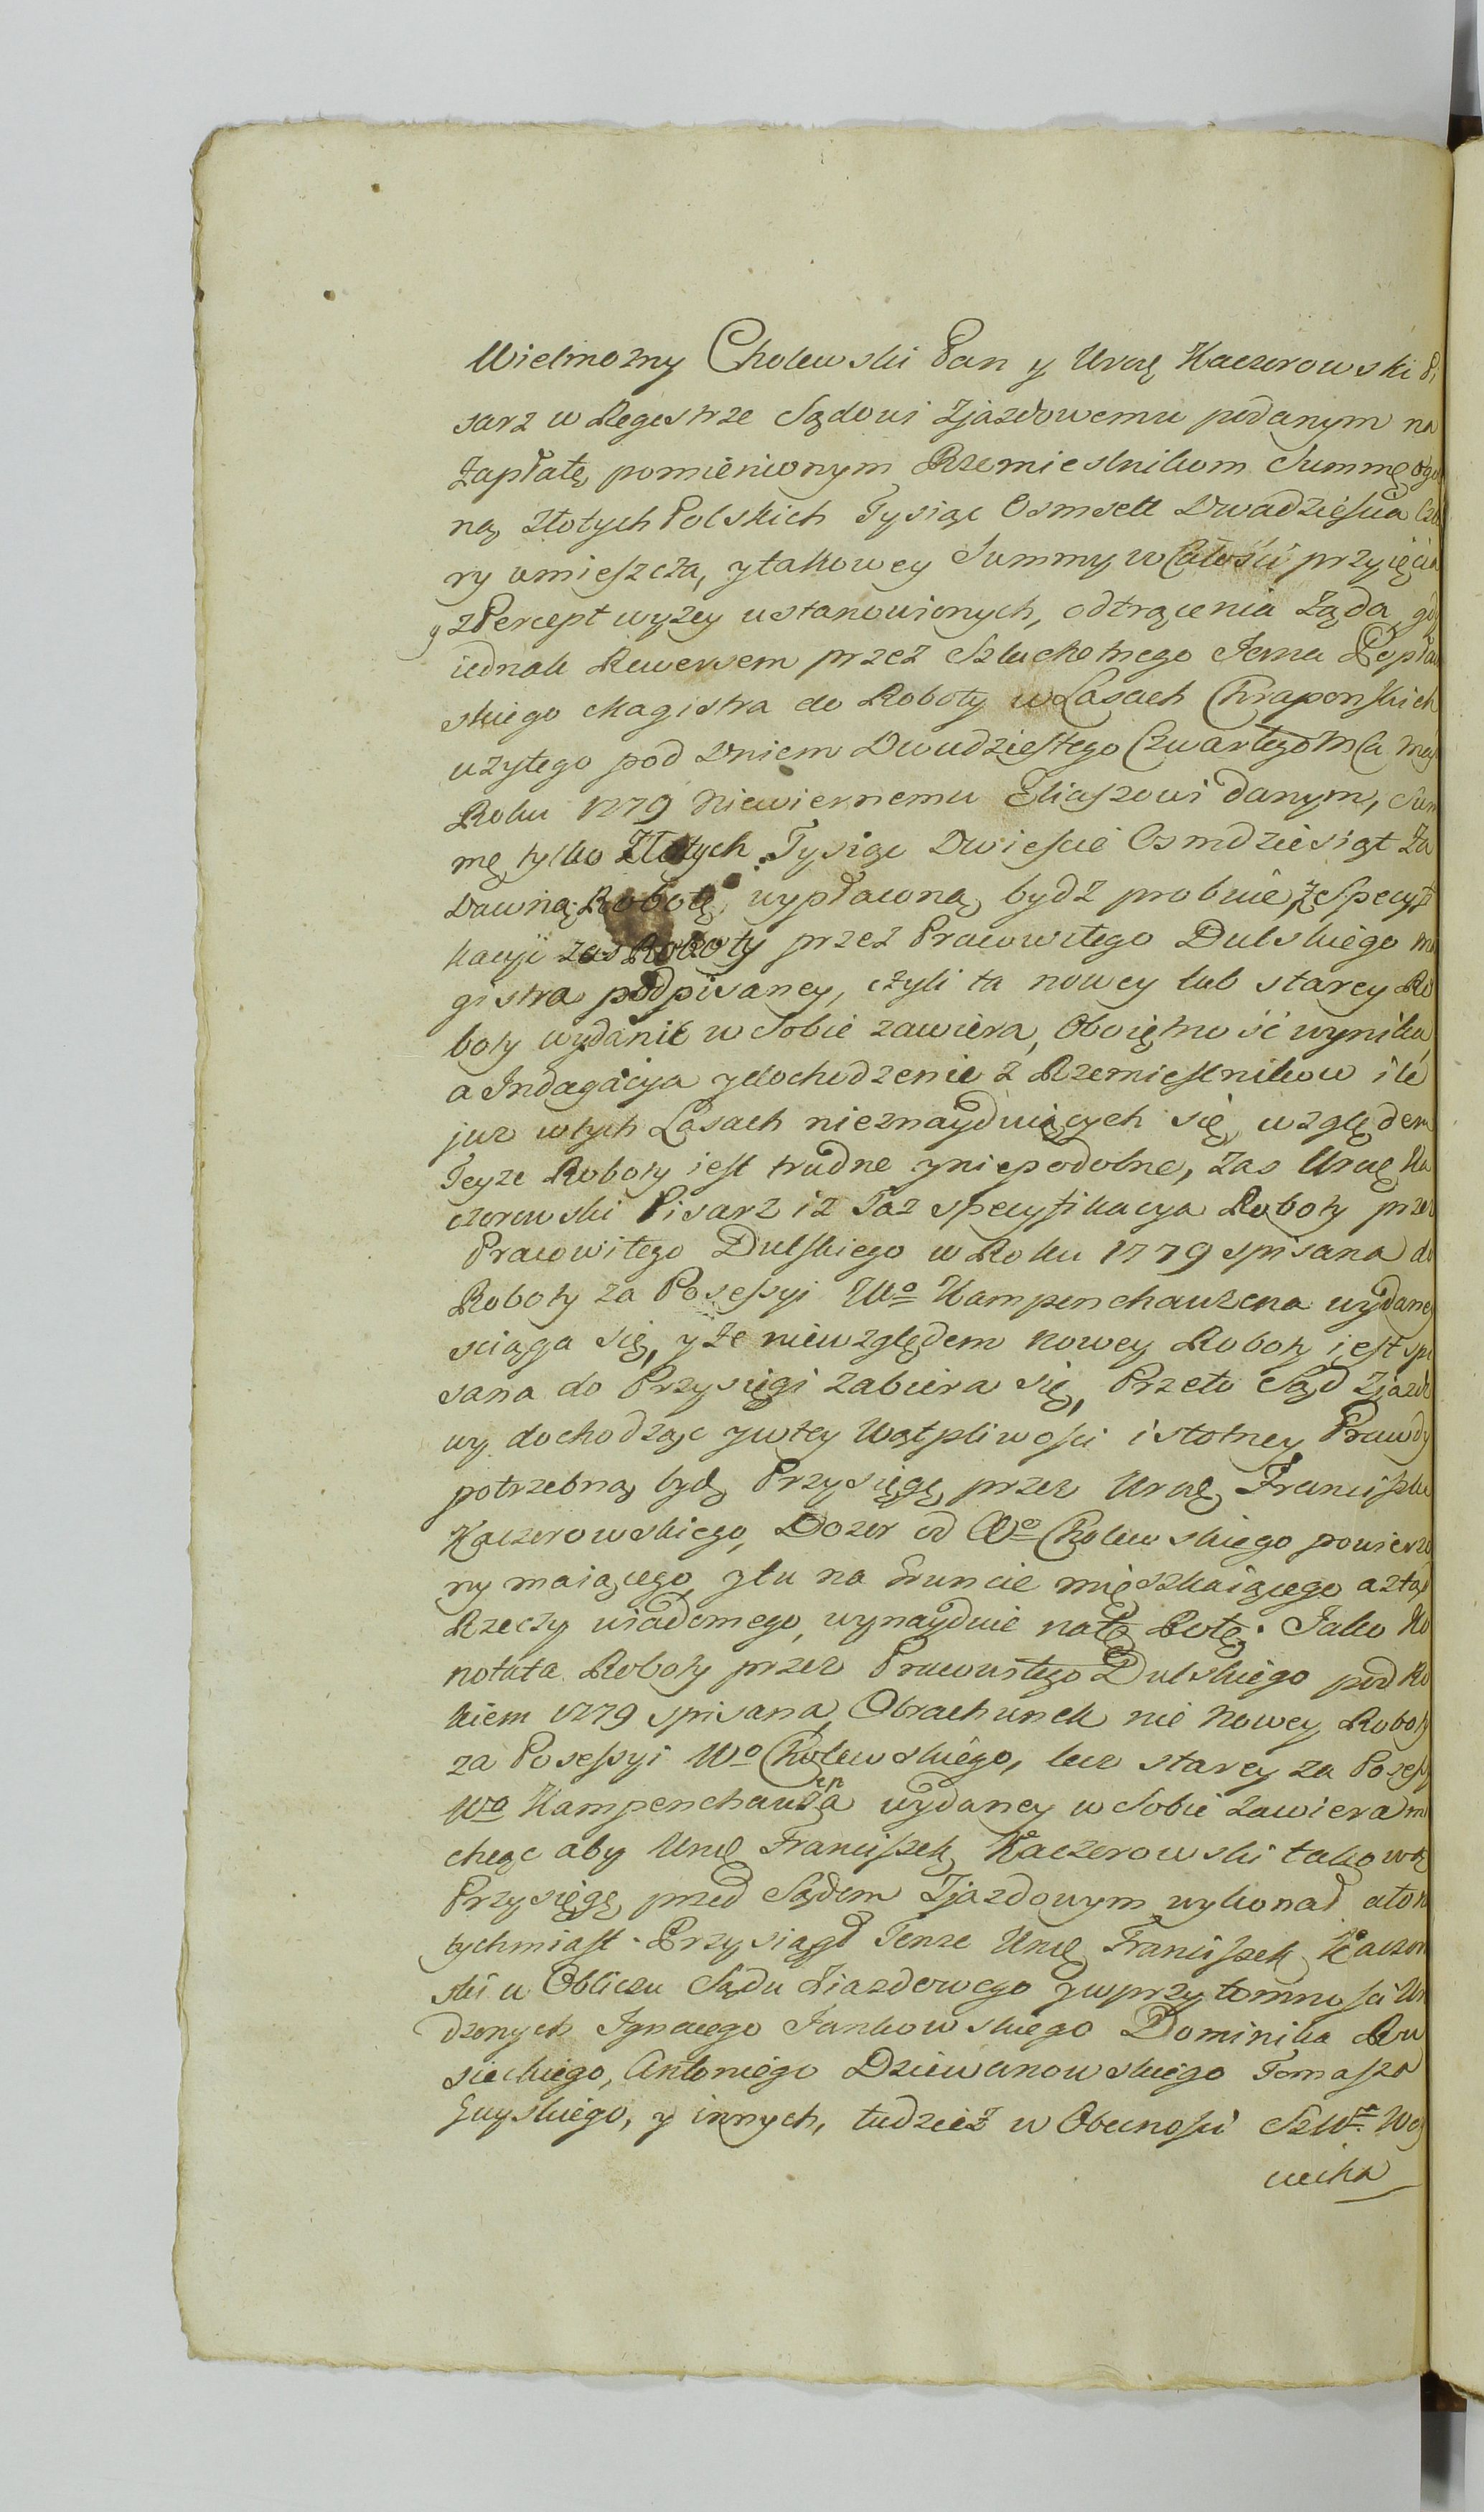 Wielmozny Cholewski Pan y Uroę Kaczorowski Pi
sarz w Regestrze Sądowi Zjazdowemu podanym na
Zapłatę, pomienionym Rzemieslnikom Summę ogol
ną, Złotych Polskich Tysiąc Osmsett Dwadziescia Czte
ry umieszcza, y takowey Summy w Całości przyięcia
y z Percept wyzey ustanowionych, odtrącenia Ząda, gdy
iednak Rewersem przez Szlachetnego Jerna
skiego Magistra do Roboty w Lasach Chraponskich
uzytego pod Dniem Dwudziestego Czwartego Mca
Roku 1779 Niewiernemu Eliaszowi danym, Sum
mę tylko Złotych Tysiąc Dwiescie Osmdziesiąt Za
Dawną Robotę, wypłaconą, bydz probuie, ze Specyfi
kacyi zas Roboty przez Pracowitego Dulskiego ma
gistra podpisaney, czyli ta nowey lub starey Ro
boty wydanie w Sobie zawiera, Oboiętność wynika,
a Indagacya y dochodzenie z Rzemieslnikow ile
juz w tych Lasach nieznayduiących się, względem
Teyze Roboty iest trudne y niepodobne, Zas Uroę Ka
czorowski Pisarz iz Taz specyfikacya Roboty przez
Pracowitego Dulskiego w Roku 1779 spisana do
Roboty za Possessyi Wo Kampenchauzena wydaney
sciąga się, y ze niewzględem Nowey Roboty iest spi
sana do Przysięgi zabiera się, Przeto Sąd Zjazdo
wy dochodząc y w tey Wątpliwosci istotney Prawdy
potrzebną bydz Przysięgę, przez Uroę Franciszka
Kaczorowskiego, Dozor od Wo Cholewskiego powierzo
ny maiącego, y tu na Gruncie mięszkaiącego a ztąd
Rzeczy wiadomego, wynayduie na tę Rotę. Jako Ko
notata Roboty przez Pracowitego Dulskiego pod Ro
kiem 1779 spisana, Obrachunek nie Nowey Roboty
za Possessyi Wo Cholewskiego, lecz starey za Possessyi
Wo Kampenchauzena wydaney w Sobie zawiera
chcąc aby Uroę Franciszek Kaczorowski takową
Przysięgę, przed Sądem Zjazdowym wykonał a to na
tychmiast. Przysiągł Tenze Uroę Franciszek Kaczorow
ski w Obliczu Sądu Ziazdowego y w przytomnosci Uro
dzonych Ignacego Jankowskiego Dominika Ru
sieckiego, Antoniego Dziewanowskiego Tomasza
y innych, tudziez w Obecnosci Szlo Woy
ciecha